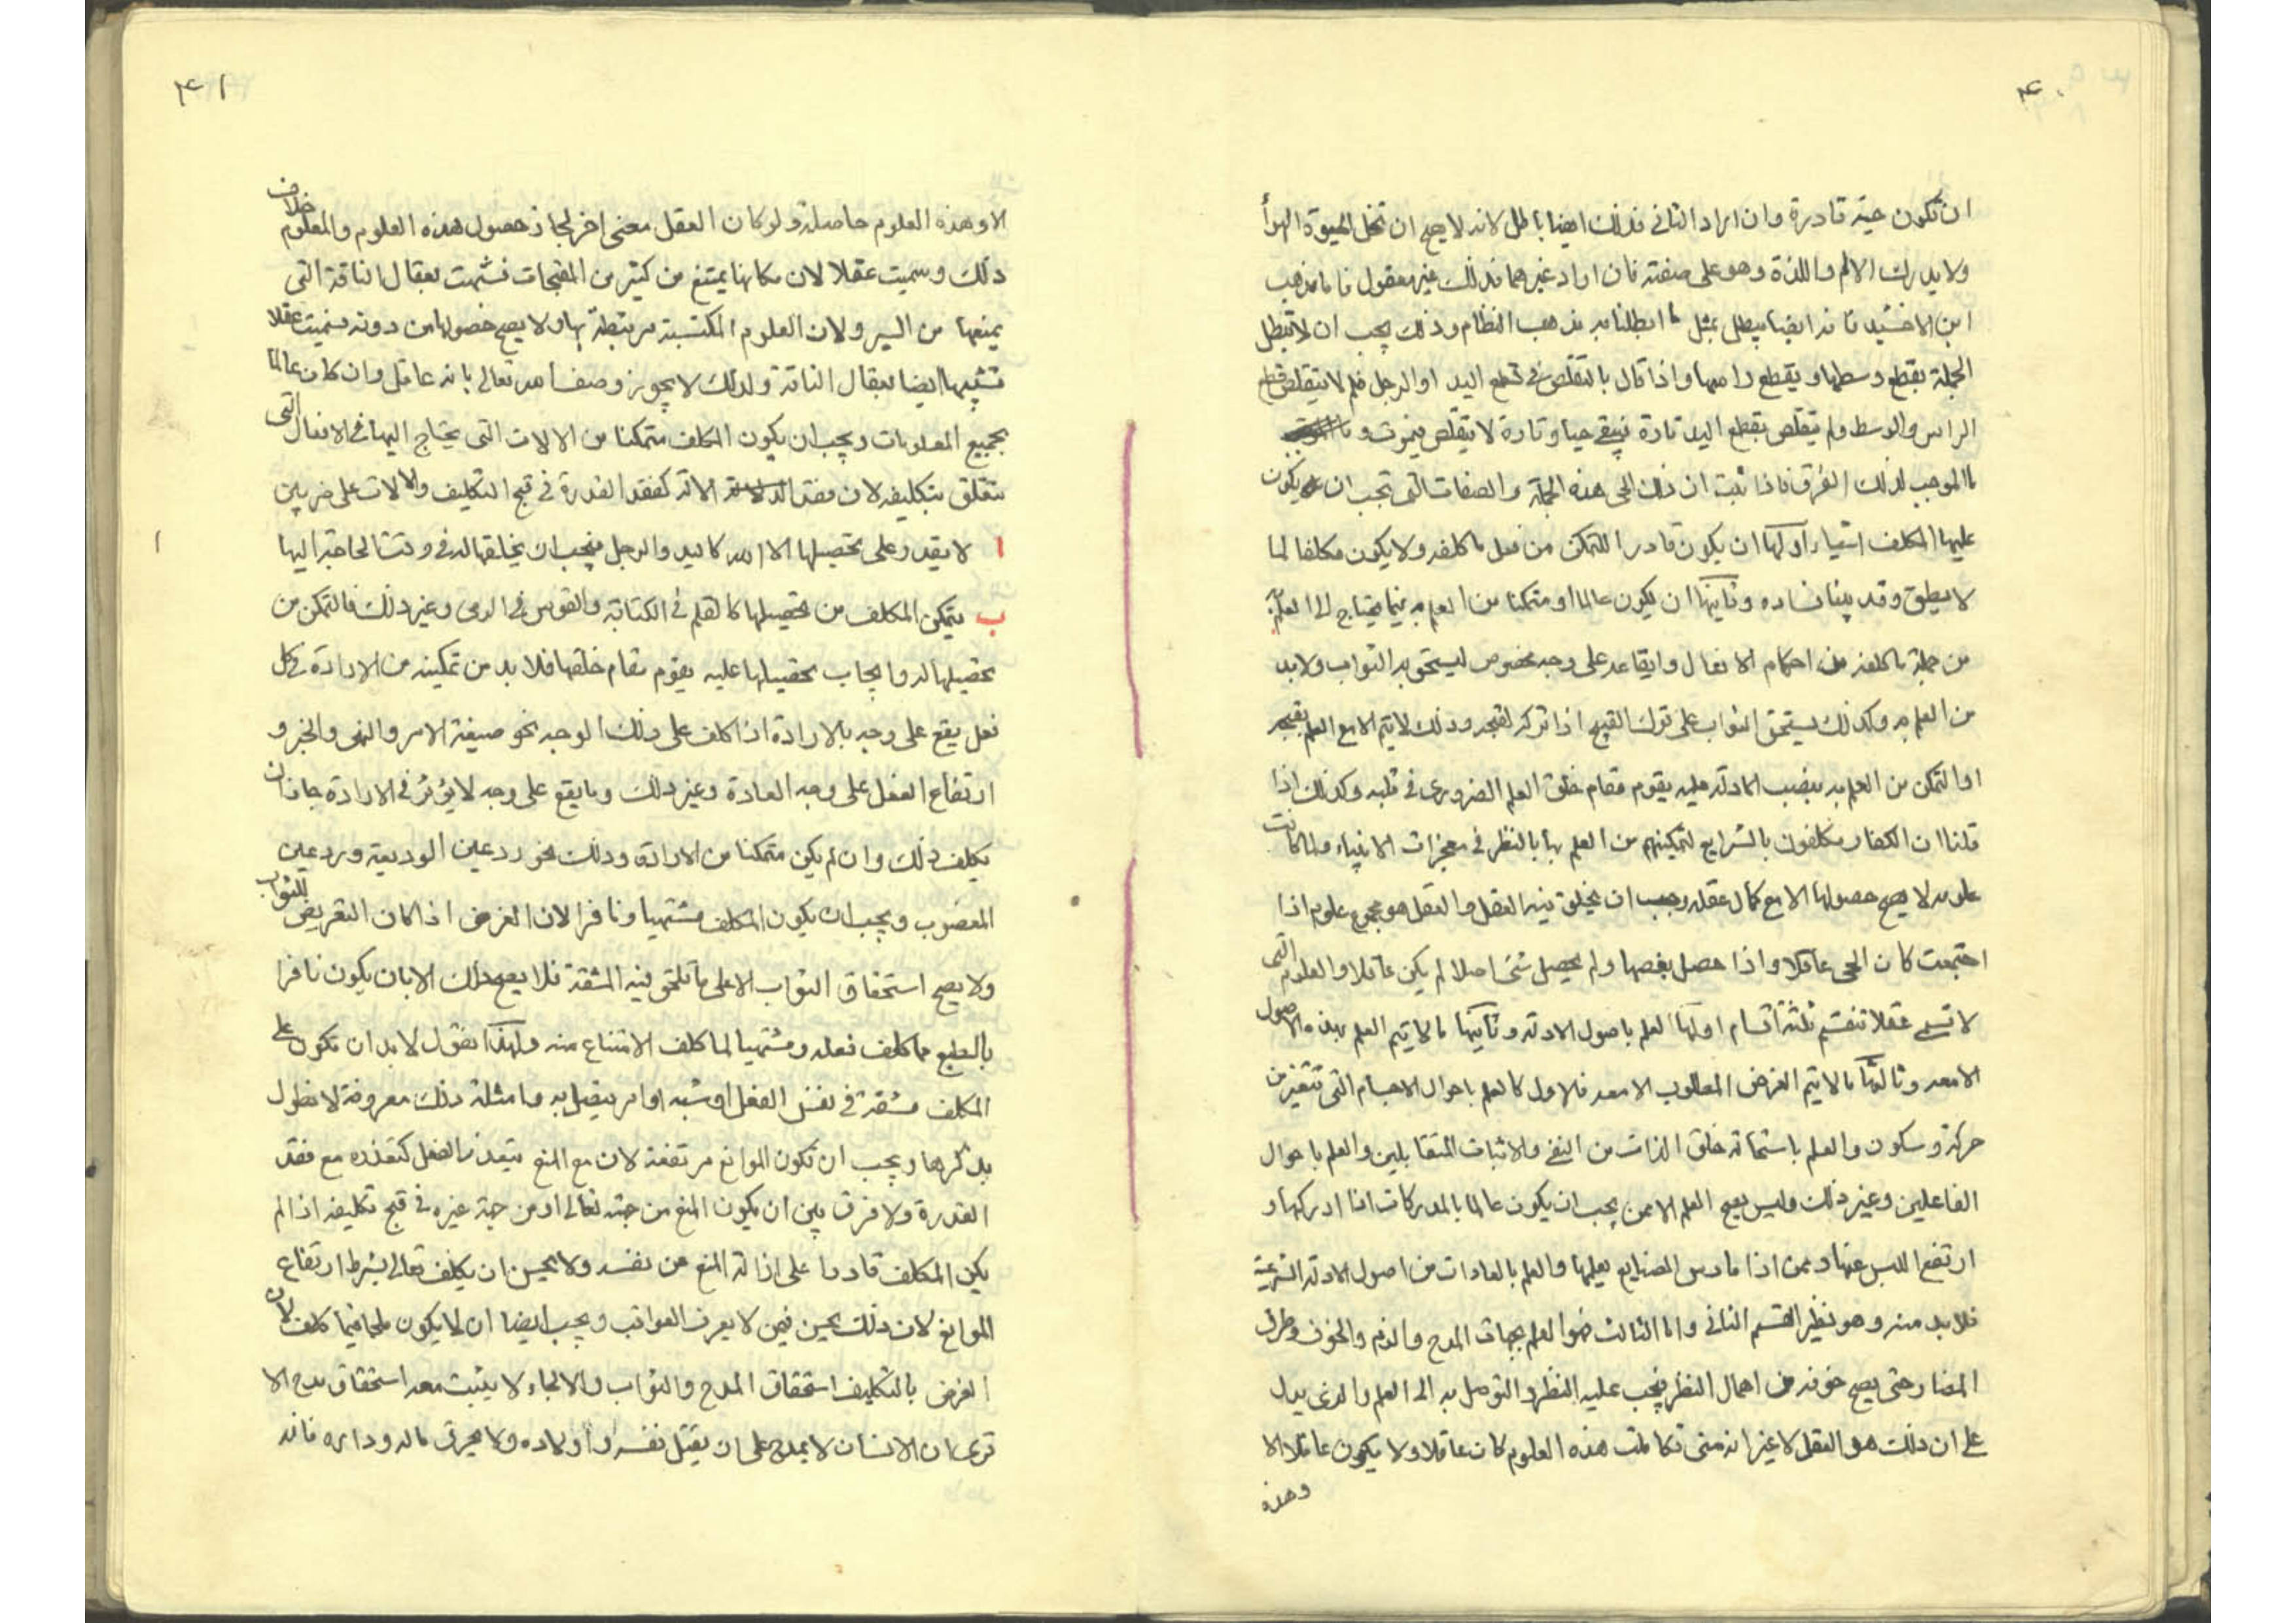 ٤٠
ان تكون حية قادرة وان اراد الثانى فذلك ايضا باطل لانه لا يصح ان تحل الحيوة الهوأ
ولا يدرك الالم واللذة وهو على صفته فان اراد غيرهما فذلك غير معقول فاما مذهب
ابن الاخشيد فانه ايضا يبطل بمثل ما ابطلنا به مذهب النظام وذلك يجب ان لا تبطل
الجملة بقطع وسطها ويقطع راسها واذا قال بالتقلص فى قطع اليد او الرجل فلم لا يتقلص قطع
الراس والوسط ولم يتقلص بقطع اليد تارة فيبقى حيا وتارة لا يتقلص فيموت و
ما الموجب لذلك الفرق فاذا ثبت ان ذلك الحى هذه الجملة والصفات التى تجب ان يكون
عليها المكلف اشياء اولها ان يكون قادرا للتمكن من فعل ما كلفه ولا يكون مكلفا لما
لا يطيق وقد بينا فساده وثانيها ان يكون عالما او متمكنا من العلم به فيما يحتاج الى العلم به
من جملة ما كلفه من احكام الافعال وايقاعه على وجه مخصوص ليستحق به الثواب ولا بد
من العلم به وكذلك يستحق الثواب على ترك القبيح اذا تركه لقبحه وذلك لا يتم الا مع العلم بقبحه
او التمكن من العلم به بنصب الادلة عليه يقوم مقام خلق العلم الضرورى فى قلبه وكذلك اذا
قلنا ان الكفار مكلفون بالشرايع لتمكينهم من العلم بها بالنظر فى معجزات الانبياء ولما كانت
علومه لا يصح حصولها الا مع كمال عقله وجب ان يخلق فيه العقل والعقل هو مجموع علوم اذا
اجتمعت كان الحى عاقلا واذا حصل بعضها ولم يحصل شئ اصلا لم يكن عاقلا والعلوم التى
لا تسمى عقلا تنقسم ثلثة اقسام اولها العلم باصول الادلة وثانيها ما لا يتم العلم بهذه الاصول
الا معه وثالثها ما لا يتم الغرض المطلوب الا معه فالاول كالعلم باحوال الاجسام التى تتغير من
حركة وسكون والعلم باستحالة خلو الذات من النفى والاثبات المتقابلين والعلم باحوال
الفاعلين وغير ذلك وليس يصح العلم الا ممن يجب ان يكون عالما بالمدركات اذا ادركها و
ارتفع اللبس عنها وممن اذا مارس الصنايع يعلمها والعلم بالعادات من اصول الادلة الشرعية
فلا بد منه وهو نظير القسم الثانى واما الثالث فهو العلم بجهات المدح والذم والخوف وطرق
المضار حتى يصح خوفه من اهمال النظر فيجب عليه النظر والتوصل به الى العلم والذى يدل
على ان ذلك هو العقل لا غير انه متى تكاملت هذه العلوم كان عاقلا ولا يكون عاقلا الا
وهذه
٤١
الا وهذه العلوم حاصلة ولو كان العقل معنى اخر لجاز حصول هذه العلوم والمعلوم خلاف
ذلك وسميت عقلا لان مكانها يمتنع من كثير من المقبحات فشبهت بعقال الناقة التى
يمنعها من السير ولان العلوم المكتسبة مرتبطة بها ولا يصح حصولها من دونه فسميت عقلا
تشبيها ايضا بعقال الناقة ولذلك لا يجوز وصف الله تعالى بانه عاقل وان كان عالما
بجميع المعلومات ويجب ان يكون المكلف متمكنا من الالات التى يحتاج اليها فى الافعال التى
تتعلق بتكليفه لان فقد الالة كفقد القدرة فى قبح التكليف والالات على ضربين
ا لا يقدر على تحصيلها الا الله كاليد والرجل فيجب ان يخلقها له فى وقت الحاجة اليها
ب يتمكن المكلف من تحصيلها كالقلم فى الكتابة والقوس فى الرمى وغير ذلك فالتمكن من
تحصيلها له وايجاب تحصيلها عليه يقوم مقام خلقها فلا بد من تمكينه من الارادة فى كل
فعل يقع على وجه بالارادة اذا كلف على ذلك الوجه نحو صيغة الامر والنهى والخبر و
ارتفاع الفعل على وجه العادة وغير ذلك وما يقع على وجه لا يؤثر فى الارادة جاز ان
يكلف ذلك وان لم يكن متمكنا من الارادة وذلك نحو رد عين الوديعة ورد عين
المغصوب ويجب ان يكون المكلف مشتهيا ونافرا لان الغرض اذا كان التعريض للثواب
ولا يصح استحقاق الثواب الا على ما تلحق فيه المشقة فلا يصح ذلك الا بان يكون نافرا
بالطبع مما كلف فعله ومشتهيا لما كلف الامتناع منه ولهذا نقول لا بد ان تكون على
المكلف مشقة فى نفس الفعل او سببه او امر يتصل به وامثلة ذلك معروفة لا نطول
بذكرها ويجب ان تكون الموانع مرتفعة لان مع المنع يتعذر الفعل كتعذره مع فقد
القدرة ولا فرق بين ان يكون المنع من جهته تعالى او من جهة غيره فى قبح تكليفه اذا لم
يكن المكلف قادرا على ازالة المنع من نفسه ولا يحسن ان يكلف تعالى بشرط ارتفاع
الموانع لان ذلك يحسن فيمن لا يعرف العواقب ويجب ايضا ان لا يكون ملجا فيما كلف لان
الغرض بالتكليف استحقاق المدح والثواب والالجاء لا يثبت معه استحقاق مدح الا
ترى ان الانسان لا يمدح على ان يقتل نفسه واولاده ولا يحرق ماله وداره فانه